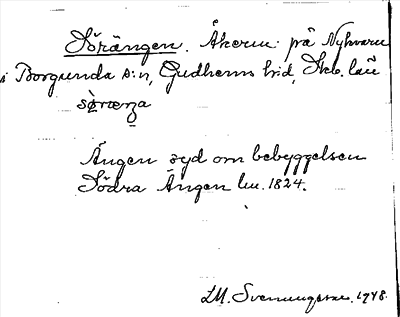 Sörängen. Åkern på Nykvarn
i Borgunda s:n, Gudhems hd, Skb. län
Ängen syd om bebyggelsen
Södra Ängen lm. 1824.
LM. Svenungsson. 1948.